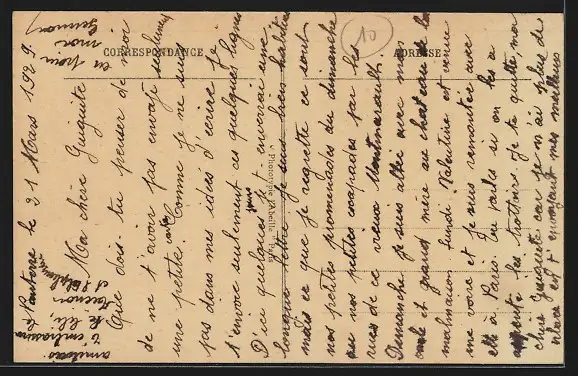 CORRESPONDANCE
ADRESSE
10
Phototypie l'Abeille, Paris
Nanterre le 21 Mars 1929.
Ma chère Guiguite
Que dois-tu penser de moi
de ne t'avoir pas envoyé seulement
une petite carte. Comme je ne suis
pas dans mes idées d'écrire je
t'envoie seulement ces quelques lignes
D'ici quelques jours je t'enverrai une
longue lettre je suis bien habituée
mais ce que je regrette ce sont
nos petites promenades du dimanche
ou nos petites escapades par les
rues de ce vieux
Dimanche je suis allée avec mon
oncle et grand mère au chateau de la
malmaison lundi Valentine est venue
me voir et je suis remontée avec
elle à Paris. Tu parles si on les a
les trottoirs. Je te quitte, ma
chère Guiguite car je n'ai plus de
place et t'envoyant mes meilleurs
amitiés.